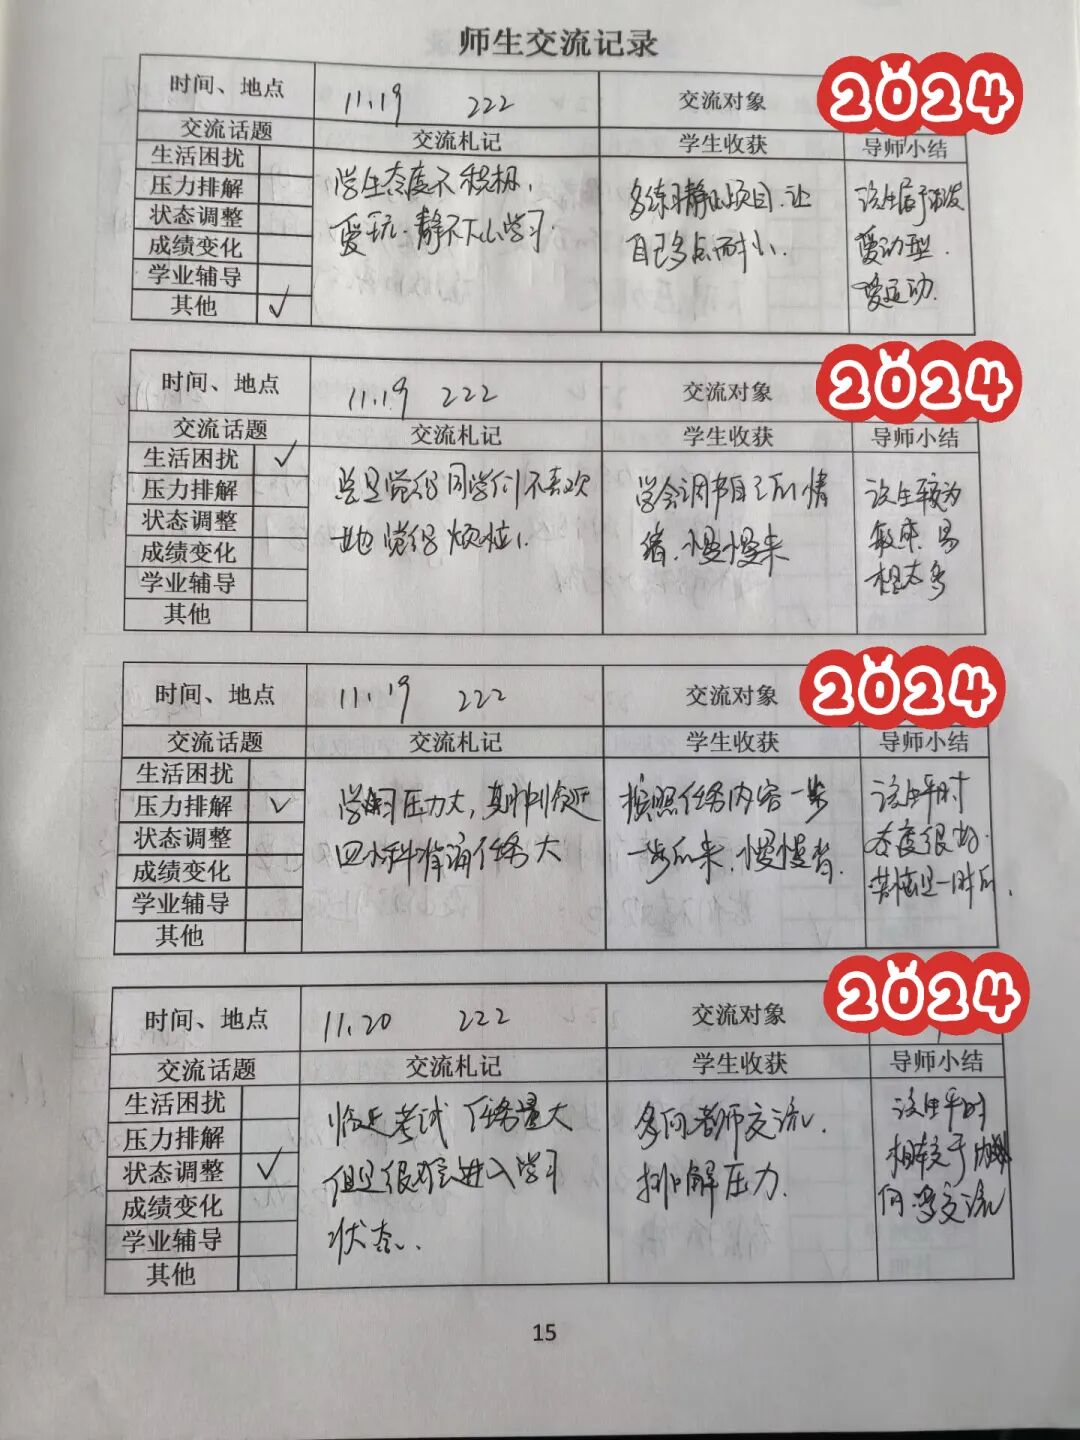 师生交流记录
时间、地点 11.19 222 交流对象 2024
交流话题 交流札记 学生收获 导师小结
生活困扰
压力排解
状态调整
成绩变化
学业辅导
其他 ✓
学生态度不积极,
爱玩.静不下心学习.
多练习静的项目.让
自己多点耐心.
该生属于
爱动型.
爱运动.
时间、地点 11.19 222 交流对象 2024
交流话题 交流札记 学生收获 导师小结
生活困扰 ✓
压力排解
状态调整
成绩变化
学业辅导
其他
总是觉得同学们不喜欢
她觉得烦恼.
学会调节自己的情
绪.慢慢来
该生较为
敏感.易
想太多
时间、地点 11.19 222 交流对象 2024
交流话题 交流札记 学生收获 导师小结
生活困扰
压力排解 ✓
状态调整
成绩变化
学业辅导
其他
学习压力大,期中临近
四小科背诵任务大
按照任务内容一步
一步的来.慢慢背.
该生平时
态度很好.
苦恼是一时的.
时间、地点 11.20 222 交流对象 2024
交流话题 交流札记 学生收获 导师小结
生活困扰
压力排解
状态调整 ✓
成绩变化
学业辅导
其他
临近考试 任务量大
但是很难进入学习
状态.
多向老师交流.
排解压力.
该生平时
相较于内
向.需交流
15